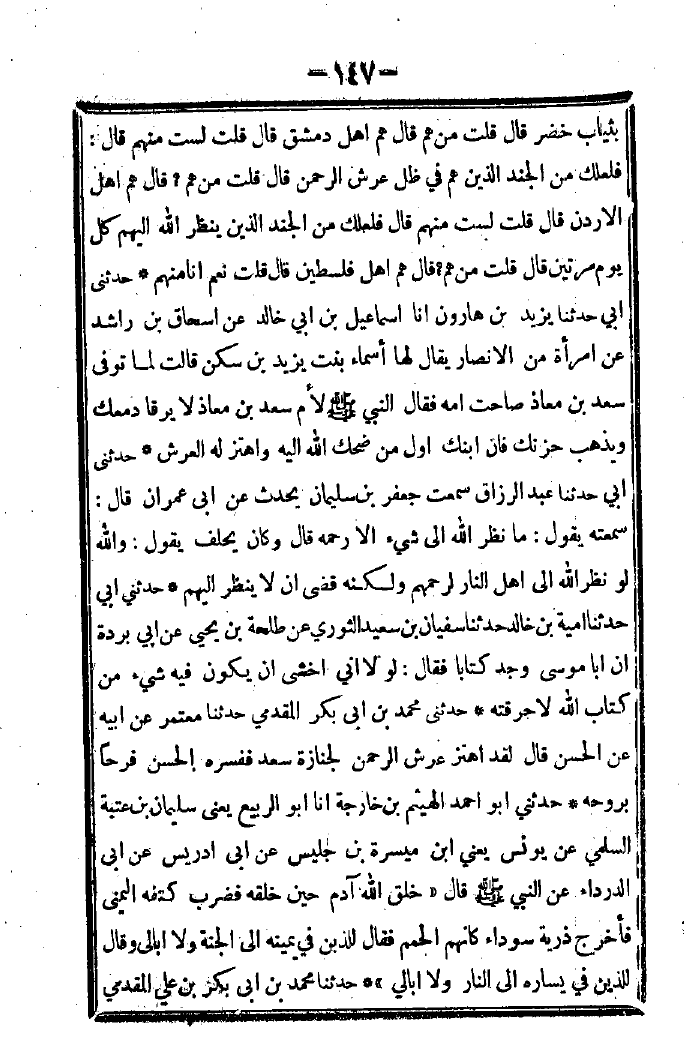 –١٤٧–
بثياب خضر قال قلت من هم قال هم اهل دمشق قال قلت لست منهم قال :
فلعلك من الجند الذين هم في ظل عرش الرحمن قال قلت من هم ? قال هم اهل
الاردن قال قلت لست منهم قال فلعلك من الجند الذين ينظر الله اليهم كل
يوم مرتين قال قلت من هم? قال هم اهل فلسطين قال قلت نعم انا منهم * حدثنى
ابي حدثنا يزيد بن هارون انا اسماعيل بن ابي خالد عن اسحاق بن راشد
عن امرأة من الانصار يقال لها أسماء بنت يزيد بن سكن قالت لما توفى
سعد بن معاذ صاحت امه فقال النبي ﷺ لأم سعد بن معاذ لا يرقا دمعك
ويذهب حزنك فان ابنك اول من ضحك الله اليه واهتز له العرش * حدثنى
ابي حدثنا عبد الرزاق سمعت جعفر بن سليمان يحدث عن ابى عمران قال :
سمعته يقول : ما نظر الله الى شيء الا رحمه قال وكان يحلف يقول : والله
لو نظر الله الى اهل النار لرحمهم ولكنه قضى ان لا ينظر اليهم * حدثني ابي
حدثنا امية بن خالد حدثنا سفيان بن سعيد الثوري عن طلحة بن يحيى عن ابي بردة
ان ابا موسى وجد كتابا فقال : لو لا اني اخشى ان يكون فيه شيء من
كتاب الله لاحرقته * حدثنى محمد بن ابى بكر المقدمي حدثنا معتمر عن ابيه
عن الحسن قال لقد اهتز عرش الرحمن لجنازة سعد ففسره الحسن فرحاً
بروحه * حدثني ابو احمد الهيثم بن خارجة انا ابو الربيع يعنى سليمان بن عتبة
السلمي عن يونس يعني ابن ميسرة بن جليس عن ابى ادريس عن ابى
الدرداء عن النبي ﷺ قال « خلق الله آدم حين خلقه فضرب كتفه اليمنى
فأخرج ذرية سوداء كانهم الحمم فقال للذين في يمينه الى الجنة ولا ابالى وقال
للذين في يساره الى النار ولا ابالي » * حدثنا محمد بن ابى بكر بن علي المقدمي